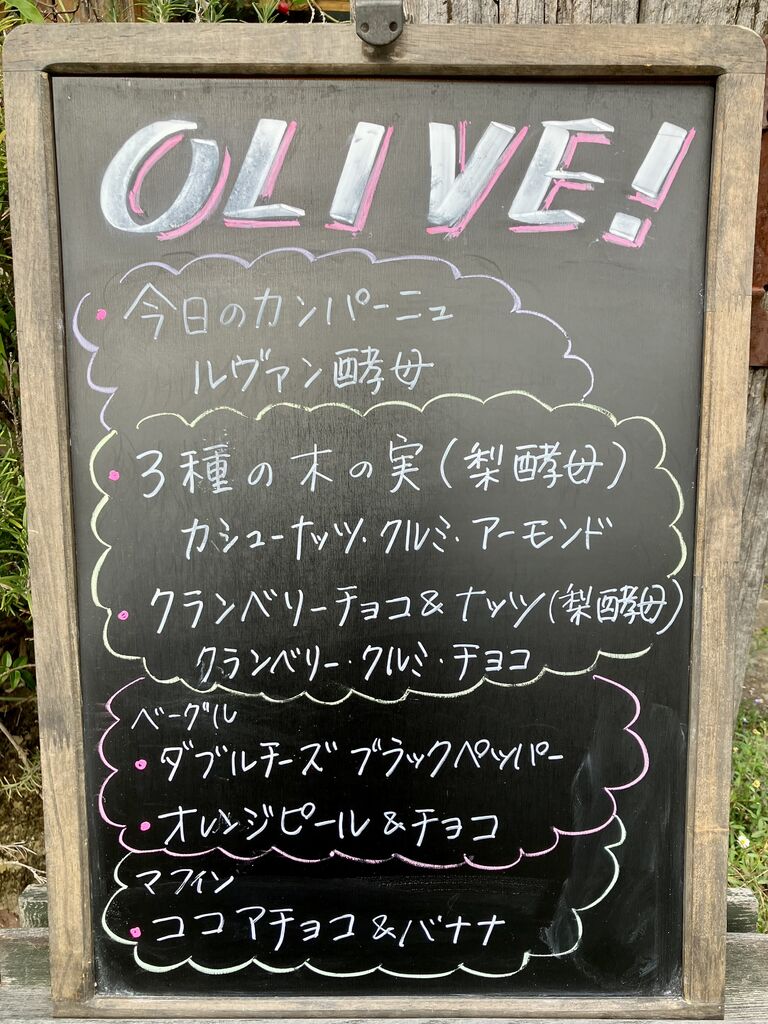 OLIVE!
・今日のカンパーニュ
ルヴァン酵母
・3種の木の実(梨酵母)
カシューナッツ・クルミ・アーモンド
・クランベリーチョコ&ナッツ(梨酵母)
クランベリー・クルミ・チョコ
ベーグル
・ダブルチーズブラックペッパー
・オレンジピール&チョコ
マフィン
・ココアチョコ&バナナ